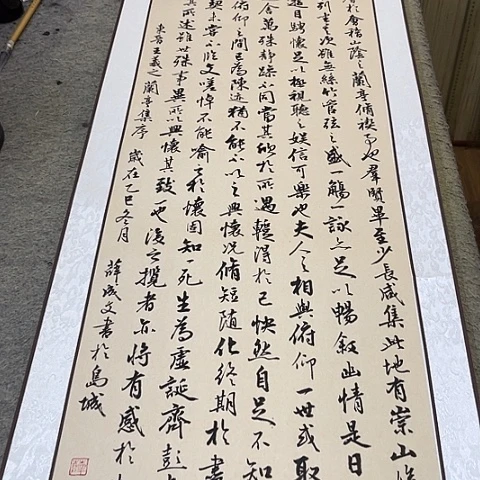 於會稽山陰之蘭亭脩禊事也羣賢畢至少長咸集此地有崇山峻
列坐其次雖無絲竹管弦之盛一觴一詠亦足以暢叙幽情是日
遊目騁懷足以極視聽之娛信可樂也夫人之相與俯仰一世或取
舍萬殊靜躁不同當其欣於所遇輕得於己快然自足不知
俯仰之間已為陳迹猶不能不以之興懷況脩短隨化終期於盡
未嘗不臨文嗟悼不能喻之於懷固知一死生為虛誕齊彭
其所述雖世殊事異所以興懷其致一也後之攬者亦將有感於
東晉王羲之蘭亭集序 歲在乙巳冬月 薛成文書於島城